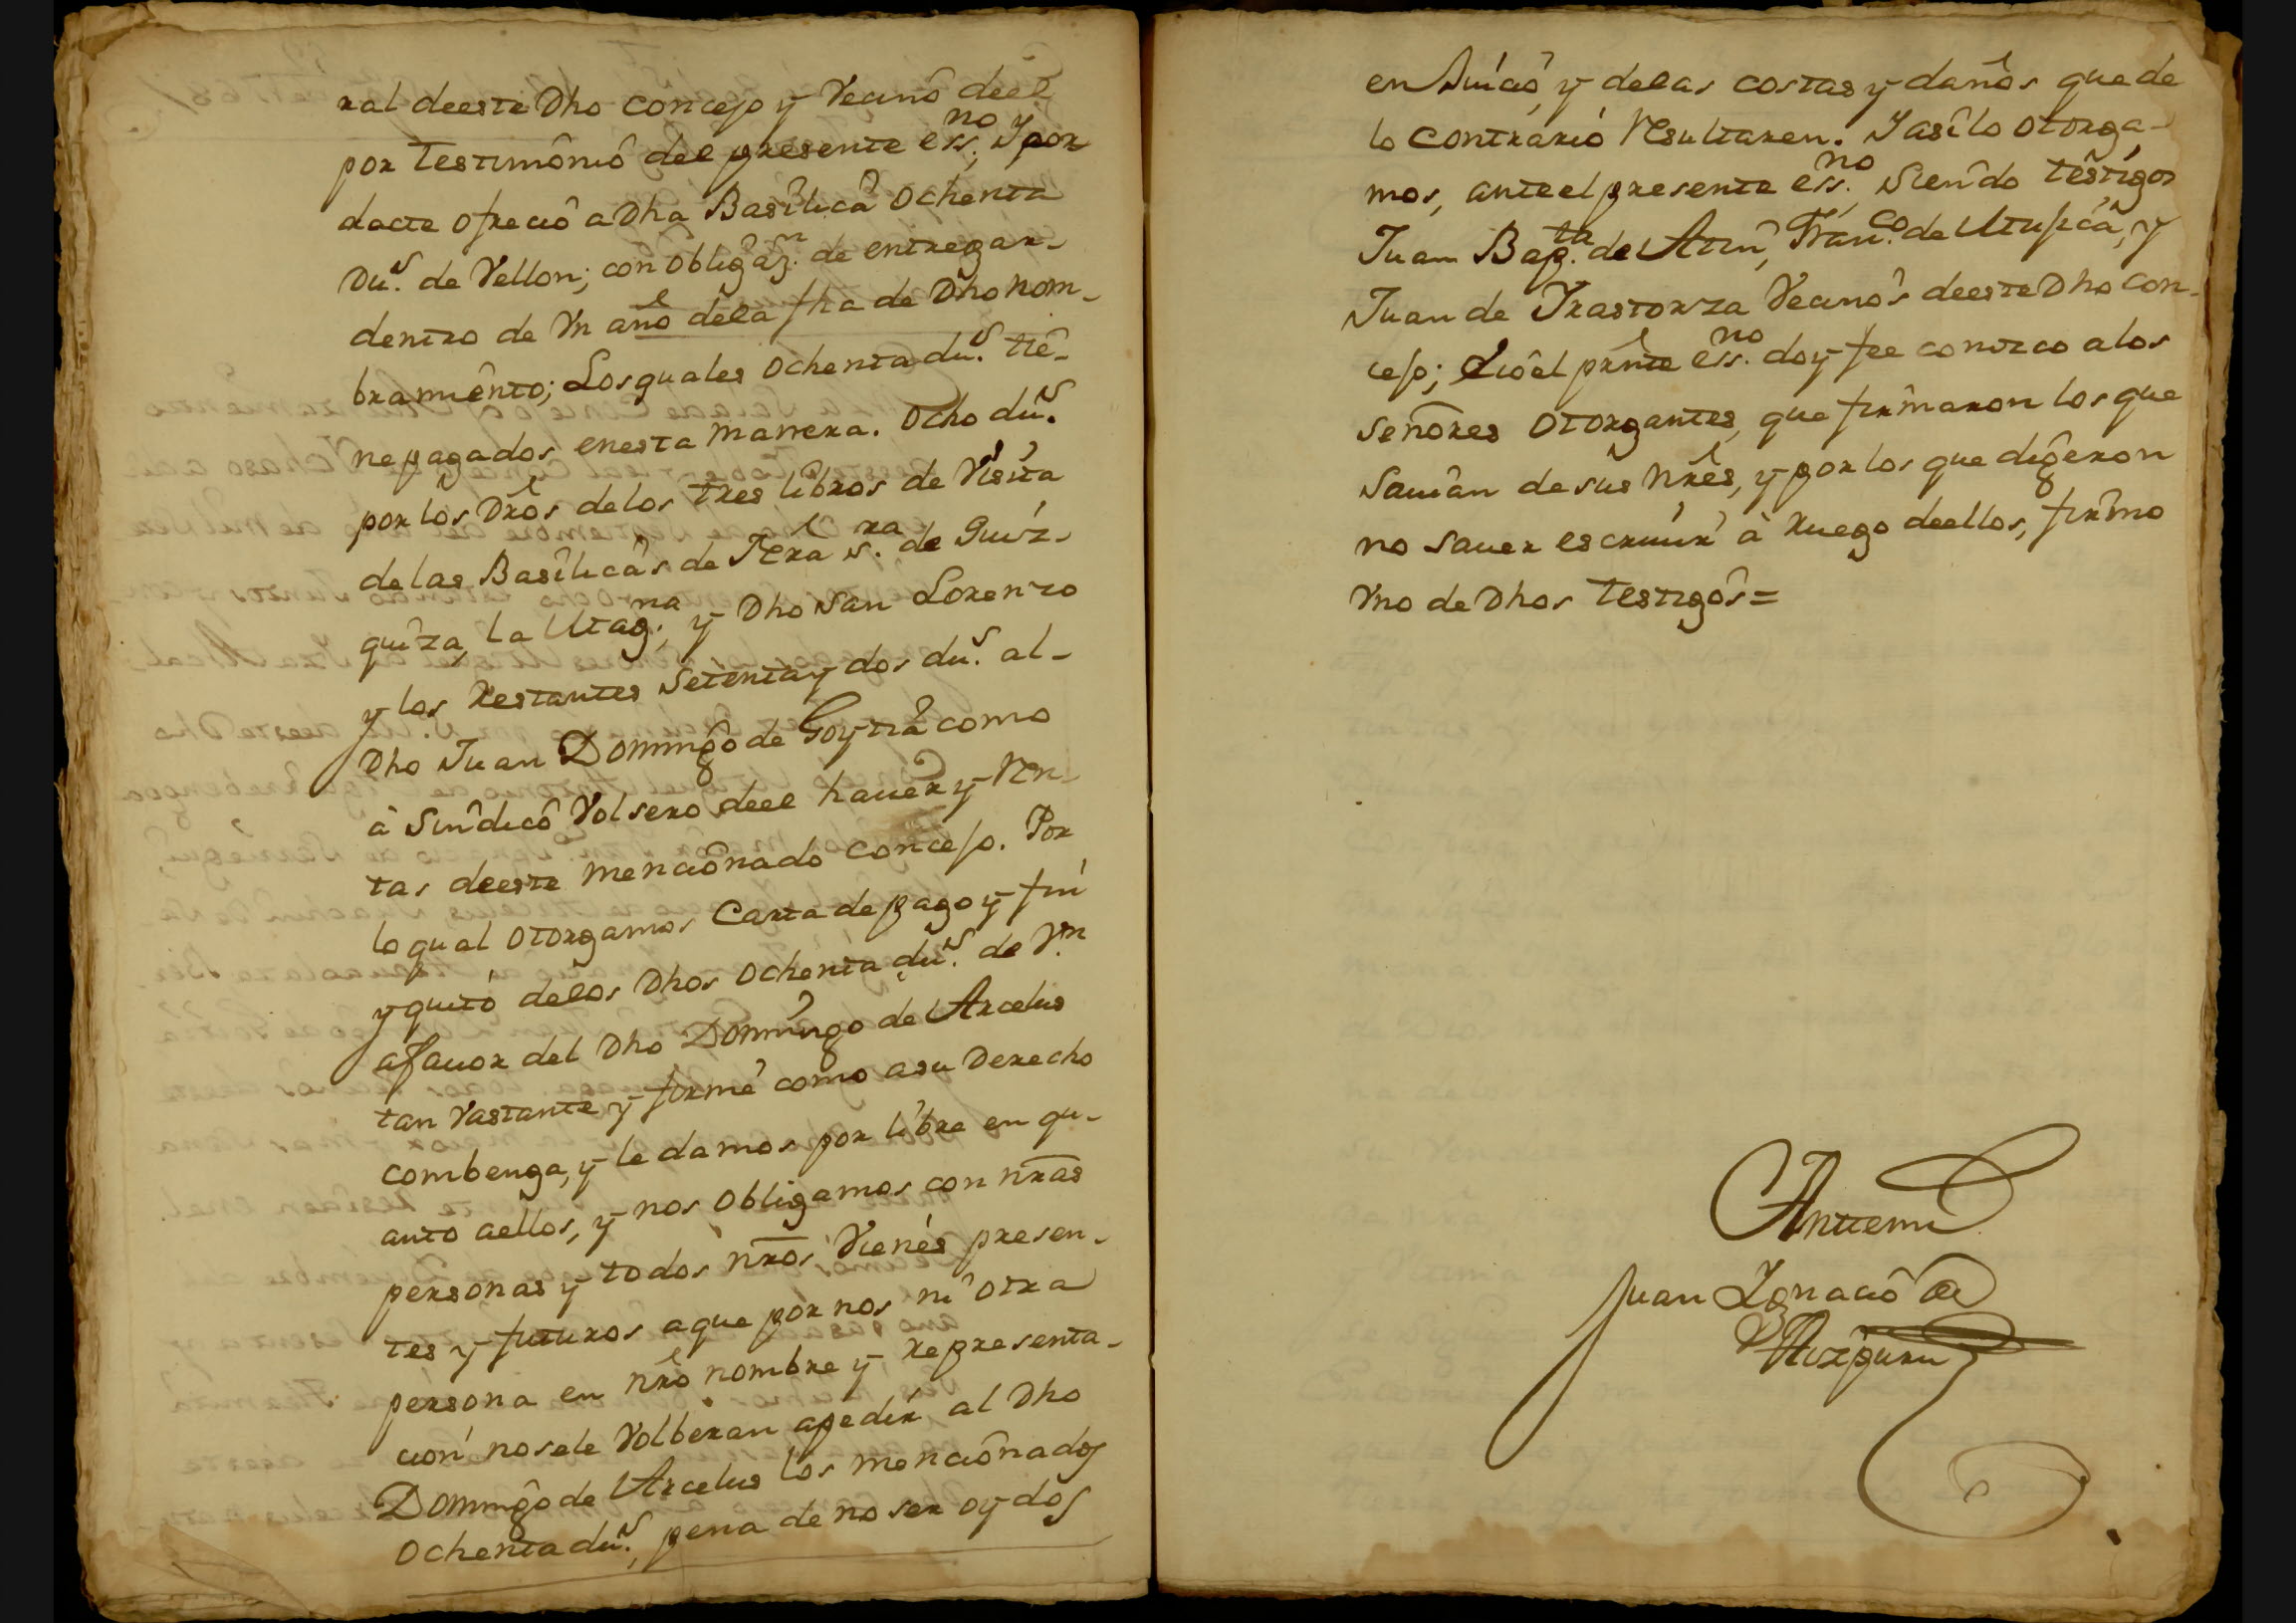 ral deeste Dho concejo y Vecino deel
por testimonio del presente ess.no, Y por
dacte ofrecio a Dha Basilica ochenta
Du.s de Vellon; con obligaz.n de entregar-
dentro de Vn año dela fha de Dho nom-
bramiento; Los quales ochenta du.s tie-
ne pagados enesta manera. Ocho du.s
por los Dros delos tres libros de Visita
de las Basilicas de Nra S.ra de Guiz-
quiza, la Antig.na y Dho San Lorenzo
y los Restantes Setenta y dos du.s al-
Dho Juan Domingo de Goytia como
à Sindico Volsero deel hauer y Ren-
tas deeste mencionado concejo. Por
lo qual otorgamos Carta de pago y fin
y quito delos Dhos ochenta du.s de V.n
afauor del Dho Domingo de Arcelus
tan Vastante y firme como asu Derecho
combenga, y le damos por libre en qu-
anto aellos, y nos obligamos con nras
personas y todos nros Vienes presen-
tes y futuros aque por nos ni otra
persona en nro nombre y representa-
cion nosele Volberan apedir al Dho
Domingo de Arcelus los mencionados
Ochenta du.s, pena de no ser oydos
en Juicio, y delas costas y daños que de
lo contrario Resultaren. Y asi lo otorga-
mos, ante el presente ess.no Siendo testigos
Juan Bap.ta de Fran.co de y
Juan de Yrastorza Vecinos deeste Dho con-
cejo; el prnte ess.no doy fee conozco alos
Señores otorgantes, que firmaron los que
Sauian de sus Nres, y por los que digeron
no Sauer escriuir à Ruego deellos, firmo
Vno de Dhos testigos=
Antemi
Juan Ignacio de
Aizpuru